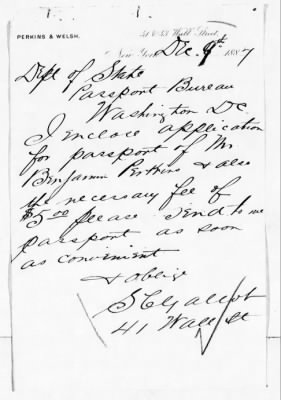 PERKINS & WELSH.
Wall Street,
New York Dec. 9th 1887
Dept of State
Passport Bureau
Washington DC
I enclose application
for passport of Mr
Benjamin Perkins & also
the necessary fee of
$5.00 please send to me
passport as soon
as convenient
& oblige
41 Wall St